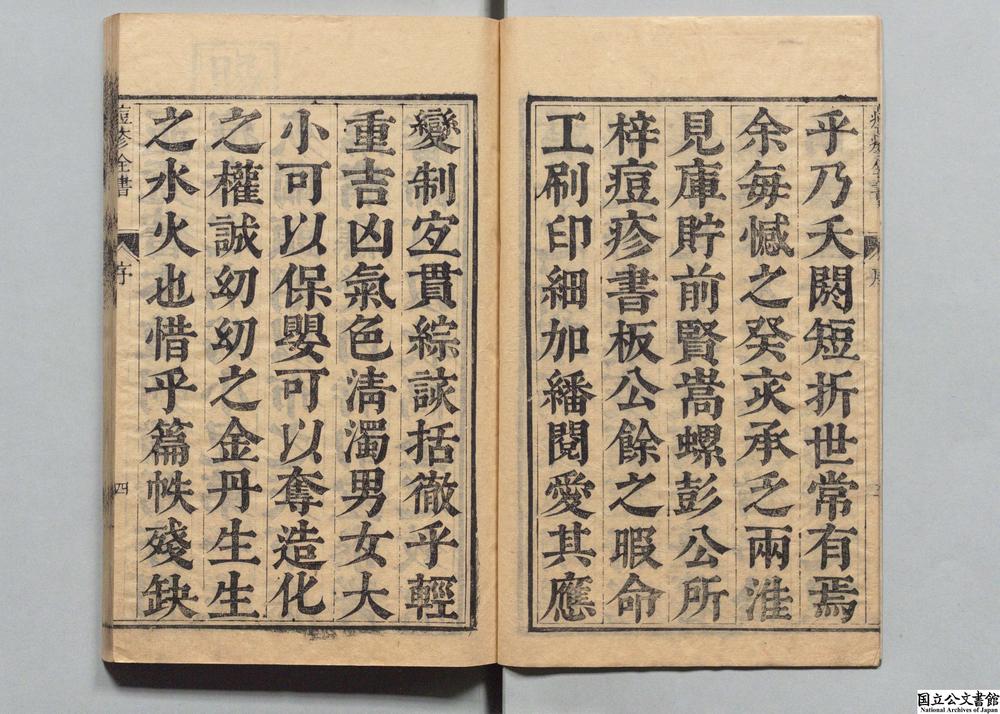 乎乃夭閼短折世常有焉
余每憾之癸亥承乏兩淮
見庫貯前賢嵩螺彭公所
梓痘疹書板公餘之暇命
工刷印細加繙閱愛其應
變制宜貫綜該括徹乎輕
重吉凶氣色清濁男女大
小可以保嬰可以奪造化
之權誠幼幼之金丹生生
之水火也惜乎篇帙殘缺
痘疹全書
序
四
国立公文書館
National Archives of Japan